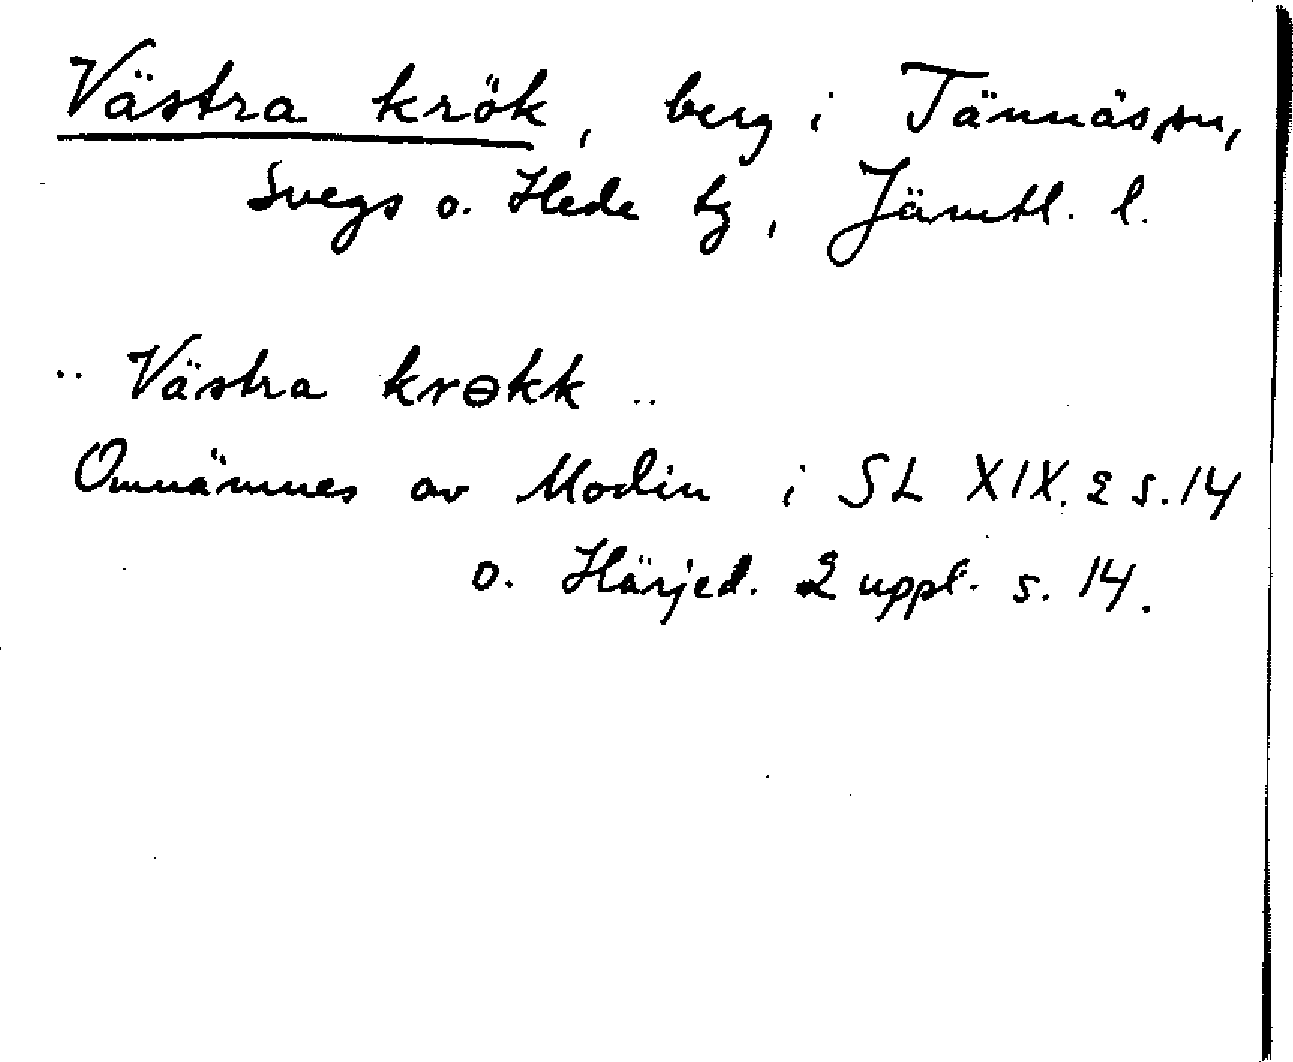 Västra krök, berg i Tännäs sn,
Svegs o. Hede tg, Jämtl. l.
.. Västra krɵkk ..
Omnämnes av Modin i SL XIX. 2 s. 14
o. Härjed. 2 uppl. s. 14.